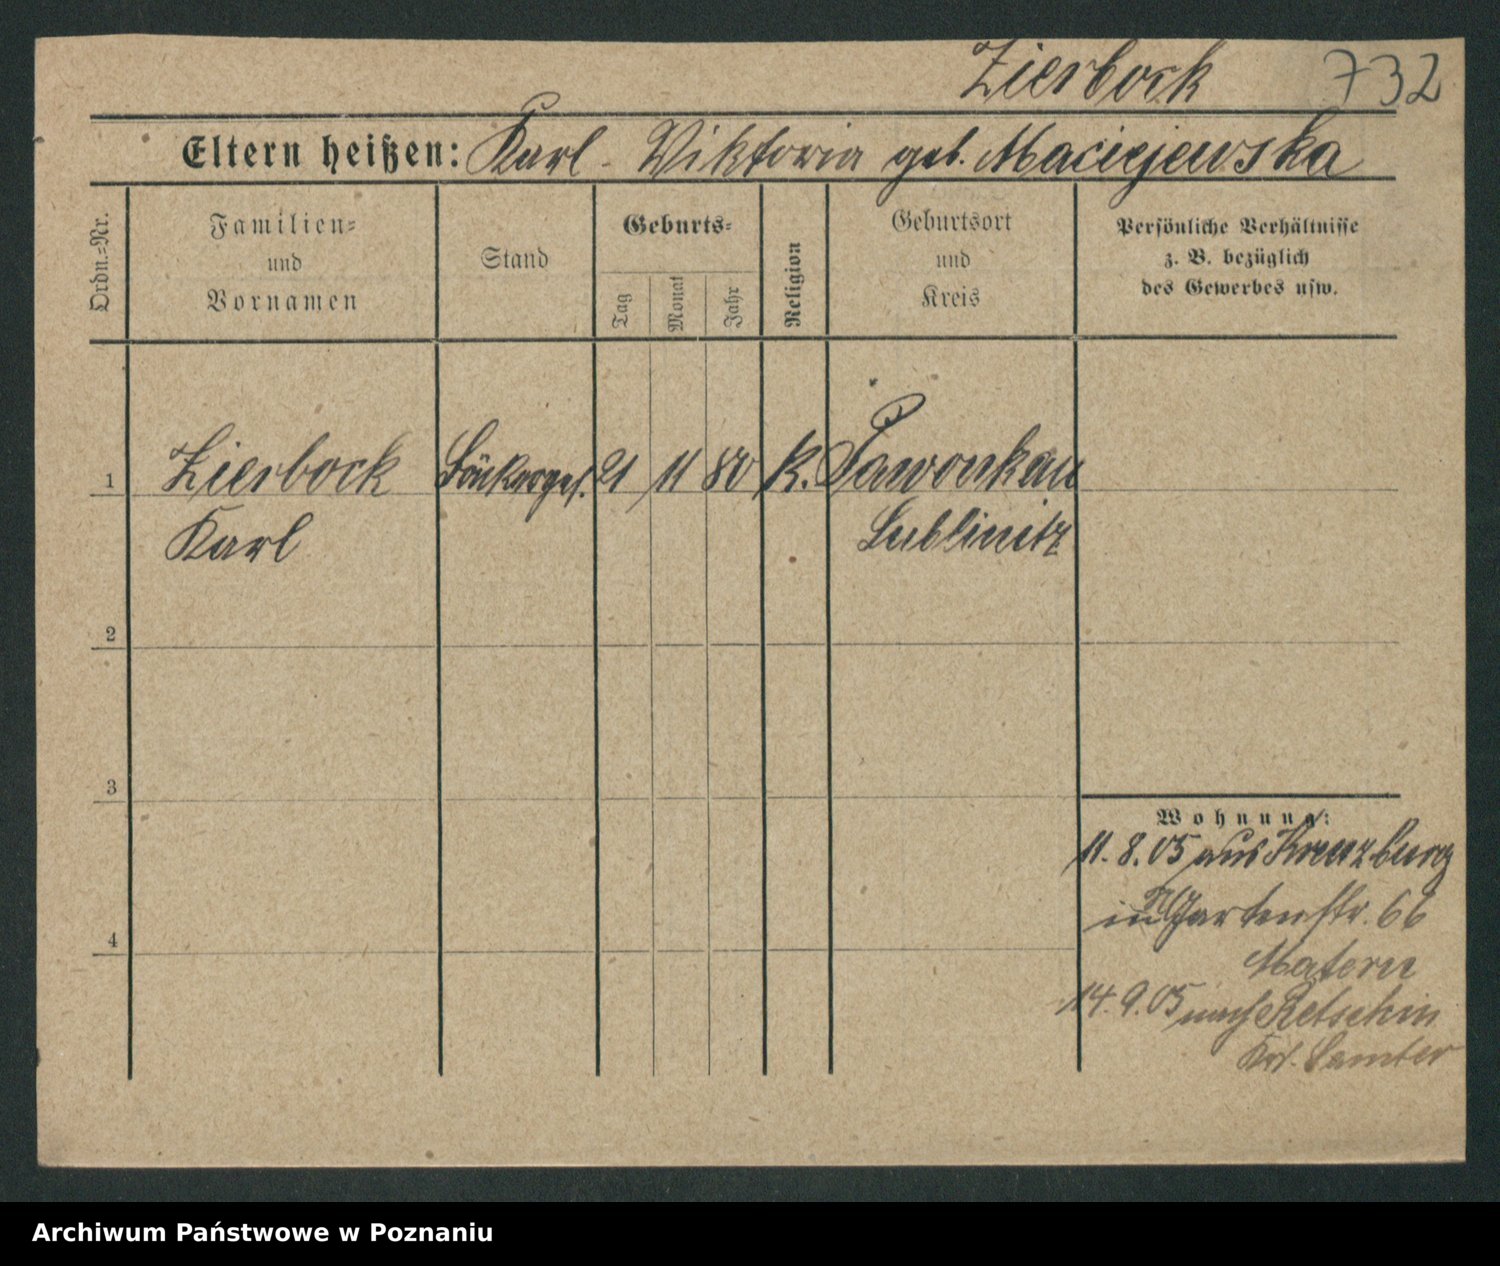 Zierbock 732
Eltern heißen: Karl - Viktoria geb. Maciejewska
Ordn.-Nr.
Familien-
und
Vornamen
Stand
Geburts-
Tag
Monat
Jahr
Religion
Geburtsort
und
Kreis
Persönliche Verhältnisse
z. B. bezüglich
des Gewerbes usw.
1 Zierbock Bäckerges. 21 11 80 K. Pawonkau
Karl Lublinitz
2
3
4
Wohnung:
11. 8. 05 aus Kreuzburg
in Gartenstr. 66
Matern
14. 9. 05 nach Retschin
Krs. Samter
Archiwum Państwowe w Poznaniu